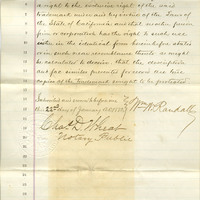 a right to the exclusive right of the use
of said trade mark by virtue of the laws of the
State of California and that neither person
firm or corporation has the right to such use
either in the identical form hereinbefore stated
or in such near resemblance thereto as might
be calculated to deceive that the description
and fac similes presented for record are true
copies of the Trademark sought to be protected.
Subscribed and sworn to before me
this 22 day of January
Wm W. Randall
Chas. D. Wheat
Notary Public